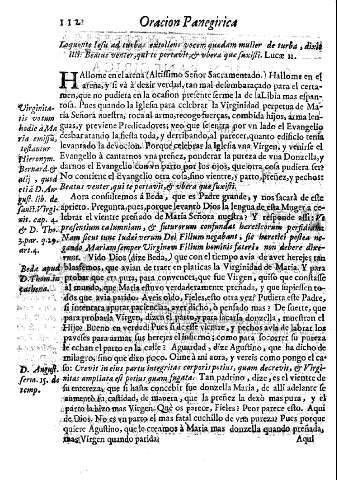 112
Oracion Panegirica
Loquente Iesu ad turbas extollens vocem quædam mulier de turba, dixit
illi: Beatus venter, qui te portabit, & vbera quæ suxisti. Lucæ 11.
HAllome en el arena (Altissimo Señor Sacramentado.) Hallome en el
arena, y si và à dezir verdad, tan mal desembaraçado para el certa-
men, que no pudiera en la ocasion presente serme la de la Libia mas espan-
tosa. Pues quando la Iglesia para celebrar la Virginidad perpetua de Ma-
ria Señora nuestra, toca al arma, recoge fuerças, combida hijos, arma len-
guas, y previene Predicadores, veo que sientan por vn lado el Evangelio
desbaratando la fiesta toda, y derribando, al parecer, quanto edificio tenia
levantado la devocion. Porque celebrar la Iglesia vna Virgen, y venirse el
Evangelio à cantarnos vna preñez, ponderar la pureza de vna Donzella, y
darnos el Evangelio con vn parto por los ojos, que otra cosa pudiera ser?
No contiene el Evangelio otra cosa, sino vientre, y parto, preñez, y pechos:
Beatus venter, qui te portavit, & vbera quæ suxisti.
Aora consultemos à Beda, que es Padre grande, y nos sacarà de este
aprieto. Pregunta, pues, porque levantò Dios la lengua de esta Muger, à ce-
lebrar el vientre preñado de Maria Señora nuestra? Y responde assi: Vt
præsentium calumniam, & futurorum confundat hæreticorum perfidiam.
Nam sicut tunc Iudæi verum Dei Filium negabant, sic hæretici postea ne-
gando Mariam semper Virginem Filium hominis fateri non debere dixe-
runt. Vido Dios (dize Beda,) que con el tiempo avia de aver hereges tan
blasfemos, que avian de tratar de platicas la Virginidad de Maria. Y para
probar que era pura, para convencer, que fue Virgen, quiso que constasse
al mundo, que Maria estuvo verdaderamente preñada, y que supiessen to-
dos que avia parido. Aveis oldo, Fieles, esto otra vez? Pudiera este Padre,
si intentara apurar paciencias, aver dicho, ò pensado mas? De suerte, que
para probarla Virgen, dizen el parto, y para sacarla donzella, muestran el
Hijo? Bueno en verdad! Pues si de esse vientre, y pechos avia de labrar los
paveses para animar sus hereges el Infierno; como para socorrer su pureza
le echan el parto en la calle? Aguardad, dize Agustino, que ha dicho de
milagro, sino que dixo poco. Oime à mi aora, y vereis como pongo el ca-
so: Crevit in eius partu integritas corporis potius, quam decrevit, & Virgi-
nitas ampliata est potius quam fugata. Tan padrino, dize, es el vientre de
su entereza, que si hasta concebir fue donzella Maria, de alli adelante se
aumentò en castidad, de manera, que la preñez la dexò mas pura, y el
parto la hizo mas Virgen. Què os parece, Fieles? Peor parece esto. Aqui
de Dios. No es vn parto el mas fatal cuchillo de vna pureza? Pues porque
quiere Agustino, que lo creamos à Maria mas donzella quando preñada,
mas Virgen quando parida?
Aqui
Virginita-
tis votum
hodie à Ma-
ria emissū,
testantur
Hieronym.
Bernard. &
alij; quod
etiā D. Au-
gust. lib. de
sanct. Virgi-
nit. cap. 4.
& D. Tho.
3. par. q. 29.
art. 4.
Beda apud
D. Thom. in
cathena.
D. August.
serm. 15. de
temp.